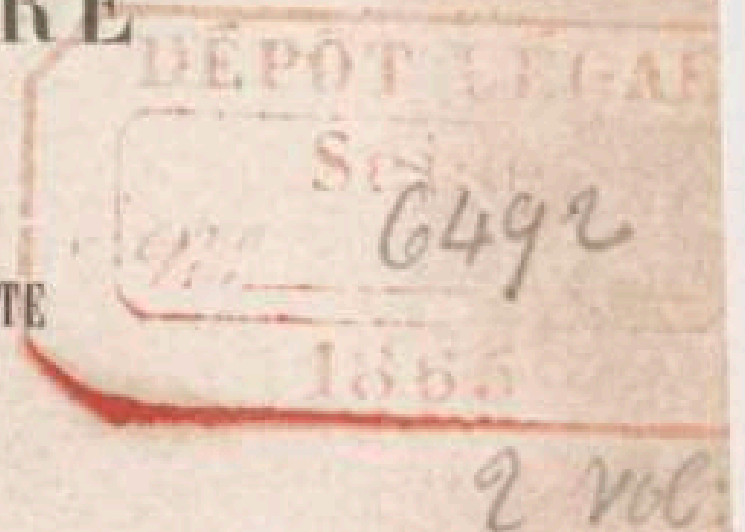 RE
DÉPÔT LÉGAL
6492
TE
1865
2 vol.